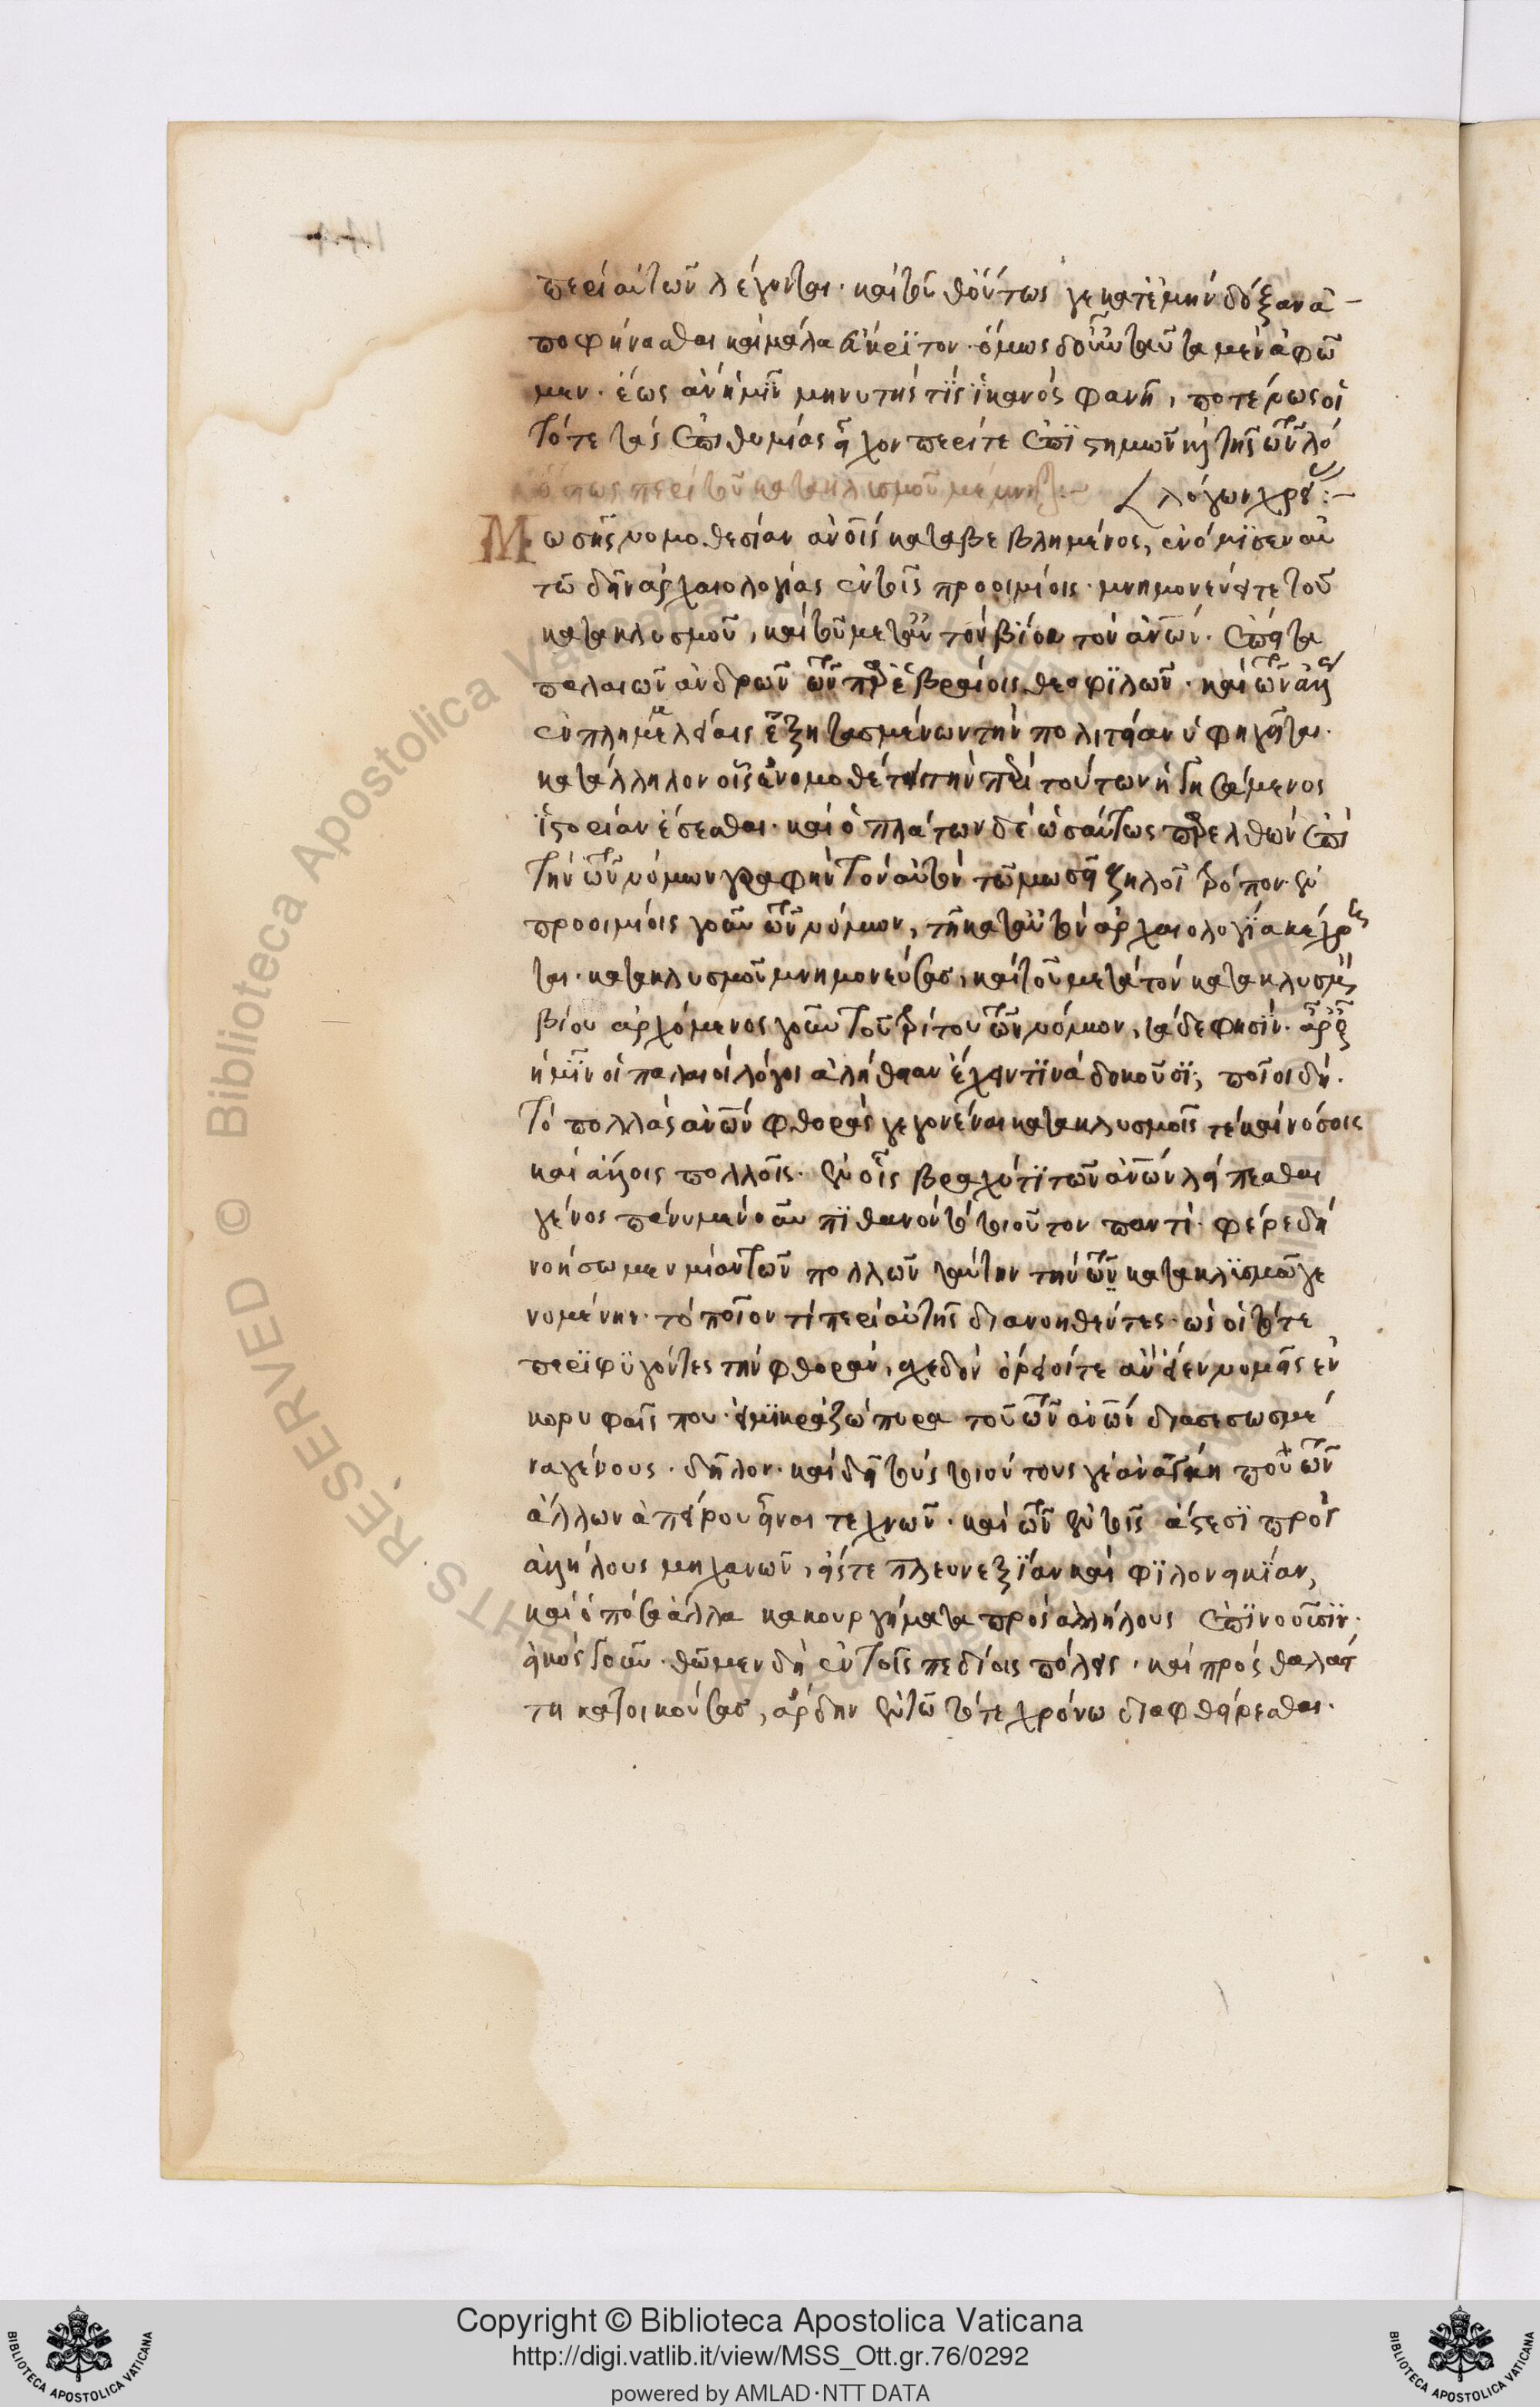 περὶ αὐτῶν λέγονται· καὶ τοῦθ' ὄντως γε κατ' ἐμὴν δόξαν ἀ–
ποφήνασθαι καὶ μάλα ἄκριτον· ὅμως δ' οὖν ταῦτα μὲν ἀφῶ
μεν· ἕως ἂν ἡμῖν μηνυτής τις ἱκανὸς φανῇ, ποτέρως οἱ
τότε τὰς ἐπιθυμίας εἶχον περί τε ἐπιστημῶν καὶ τῆς τῶν λό
ὅπως περὶ τοῦ κατακλισμοῦ μέμνηται:– λόγων χρεί:–
Μωσῆς νομοθεσίαν ἀνοῖς καταβεβλημένος, ἐνόμισεν αὐ
τῶ δεῖν ἀρχαιολογίας ἐν τοῖς προοιμίοις· μνημονεύει τε τοῦ
κατακλυσμοῦ, καὶ τοῦ μετ' αὐτὸν βίου τῶν ἀνῶν· ἔπειτα
παλαιῶν ἀνδρῶν τῶν παρ' ἑβραίοις θεοφιλῶν· καὶ τῶν ἄλλ
ἐν πλημμελείαις ἐξητασμένων τὴν πολιτείαν ὑφηγεῖται·
κατάλληλον οἷς ἐνομοθέτει τὴν περὶ τούτων ἡγησάμενος
ἱστορίαν ἔσεσθαι· καὶ ὁ πλάτων δὲ ὡσαύτως παρελθὼν ἐπὶ
τὴν τῶν νόμων γραφὴν τὸν αὐτὸν τῶ μωσεῖ ζηλοῖ τρόπον· ἐν
προοιμίοις γοῦν τῶν νόμων, τῇ κατ' αὐτὸν ἀρχαιολογία κέχρη
ται· κατακλυσμοῦ μνημονεύσας, καὶ τοῦ μετὰ τὸν κατακλυσμὸν
βίου ἀρχόμενος γοῦν τοῦ τρίτου τῶν νόμων, τάδε φησίν· ἆρ' οὖν
ἡμῖν οἱ παλαιοὶ λόγοι ἀλήθειαν ἔχειν τινὰ δοκοῦσι; ποῖοι δή·
τὸ πολλὰς ἀνῶν φθορὰς γεγονέναι κατακλυσμοῖς τε καὶ νόσοις
καὶ ἄλλοις πολλοῖς· ἐν οἷς βραχύ τι τῶν ἀνῶν λείπεσθαι
γένος πάνυ μὲν οὖν πιθανὸν τὸ τοιοῦτον παντί· φέρε δὴ
νοήσωμεν μίαν τῶν πολλῶν ταύτην τὴν τῶν κατακλισμῶ γε
νομένην· τὸ ποῖόν τι περὶ αὐτῆς διανοηθέντες· ὡς οἱ τότε
περιφυγόντες τὴν φθορὰν, σχεδὸν ὄρειοί τε ἂν εἶεν νομεῖς ἐν
κορυφαῖς που· σμικρὰ ζώπυρα τοῦ τῶν ἀνῶν διασεσωσμέ
να γένους· δῆλον· καὶ δὴ τοὺς τοιούτους γε ἀνάγκη που τῶν
ἄλλων ἀπείρου εἶναι τεχνῶν· καὶ τῶν ἐν τοῖς ἄστεσι πρὸς
ἀλλήλους μηχανῶν, εἴς τε πλεονεξίαν καὶ φιλονεικίαν,
καὶ ὁπόσα ἄλλα κακουργήματα πρὸς ἀλλήλους ἐπινοοῦσιν·
εἰκὸς γοῦν· θῶμεν δὴ ἐν τοῖς πεδίοις πόλεις· καὶ πρὸς θαλάτ
τη κατοικούσας, ἄρδην ἐν τῶ τότε χρόνω διαφθείρεσθαι·
Copyright © Biblioteca Apostolica Vaticana
http://digi.vatlib.it/view/MSS_Ott.gr.76/0292
powered by AMLAD·NTT DATA
BIBLIOTECA APOSTOLICA VATICANA
BIBLIOTECA APOSTOLICA VATICANA